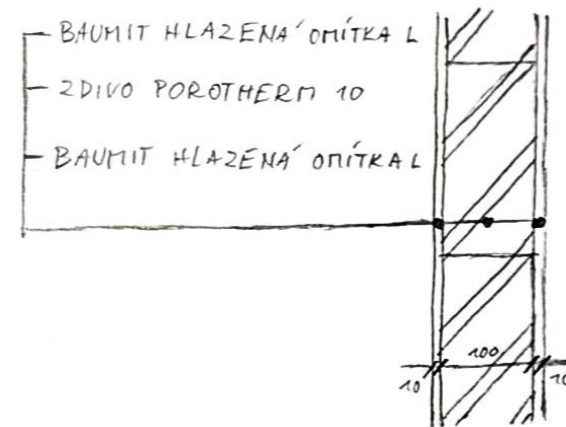 BAUMIT HLAZENÁ OMÍTKA L
ZDIVO POROTHERM 10
BAUMIT HLAZENÁ OMÍTKA L
10 100 10